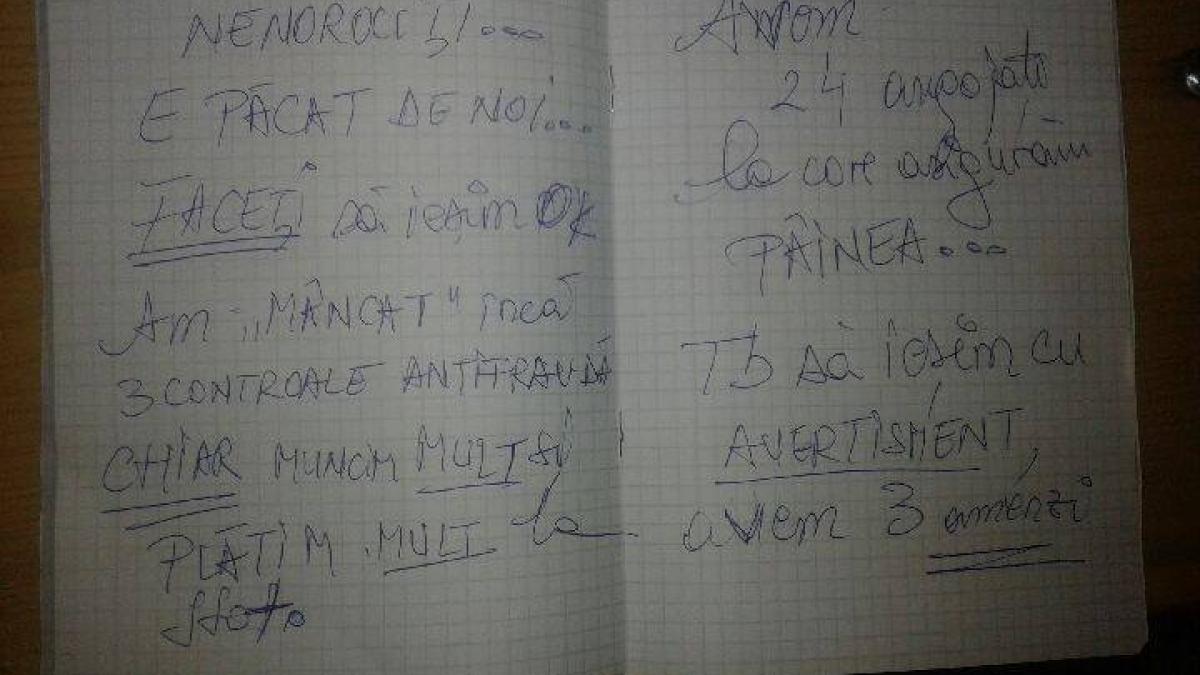 NENOROCIȚI...
E PĂCAT DE NOI...
FACEȚI să ieșim OK
Am „MÂNCAT" încă
3 CONTROALE ANTIFRAUDĂ
CHIAR MUNCIM MULT și
PLĂTIM MULT la
stat.
Avem
24 angajați
la care asigurăm
PÂINEA...
Tb să ieșim cu
AVERTISMENT,
avem 3 amenzi